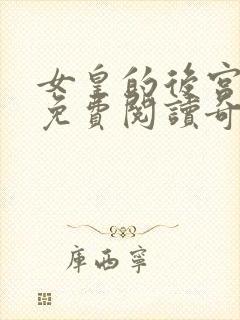 女皇的後宮
免費閱讀奇
庫西寧